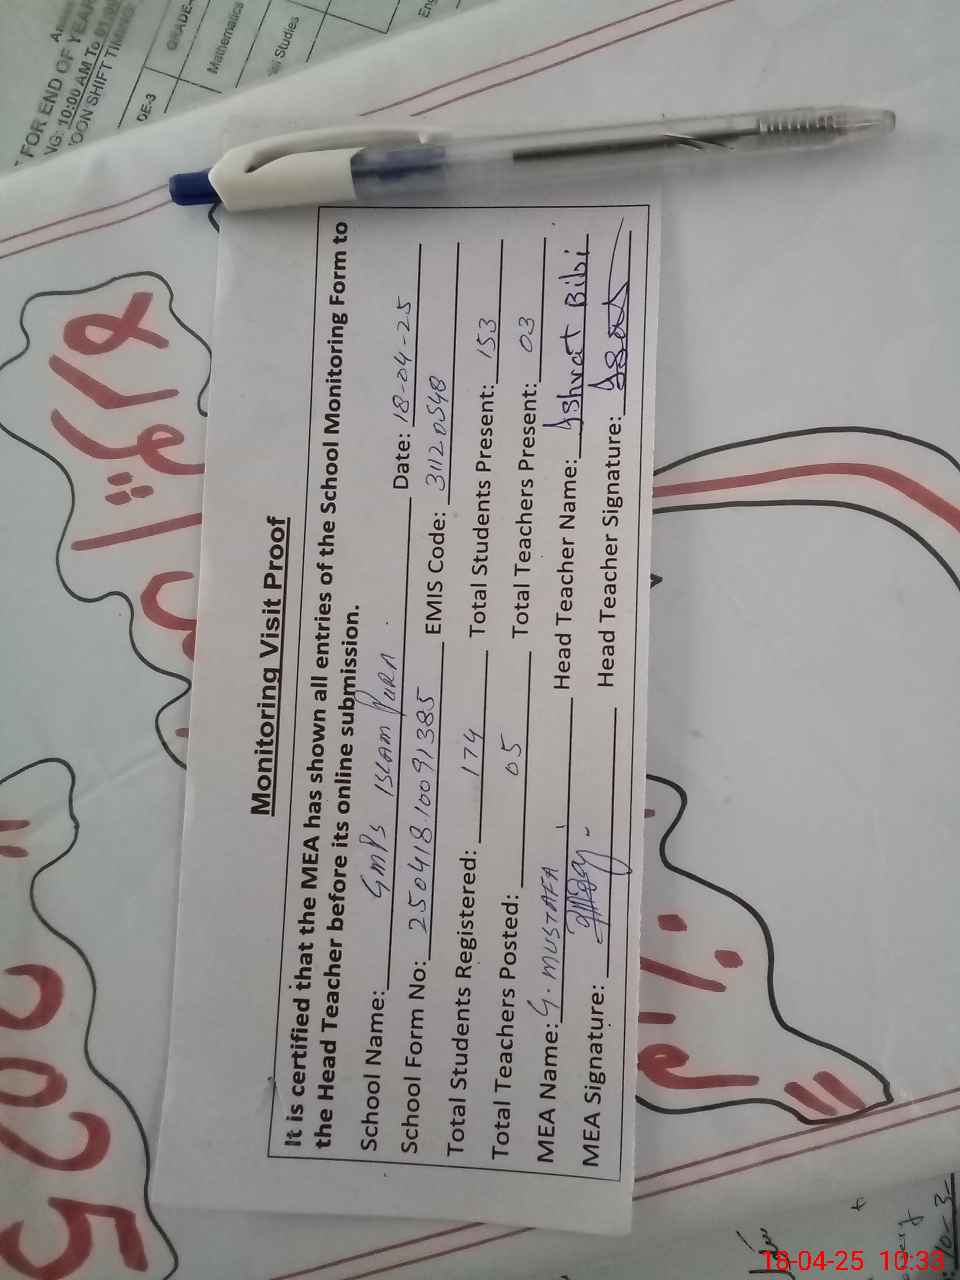 Monitoring Visit Proof
It is certified that the MEA has shown all entries of the School Monitoring Form to
the Head Teacher before its online submission.
School Name: GMPS ISLAM PURA. Date: 18-04-25
School Form No: 250418.10091385 EMIS Code: 31120548
Total Students Registered: 174 Total Students Present: 153
Total Teachers Posted: 05 Total Teachers Present: 03
MEA Name: G. MUSTAFA Head Teacher Name: Ishrat Bibi
MEA Signature: Head Teacher Signature:
FOR END OF YEAR
NG: 10:00 AM To
OON SHIFT TIMING
GRADE-
DE-3
Mathematics
Studies
Eng
2025
18-04-25 10:33